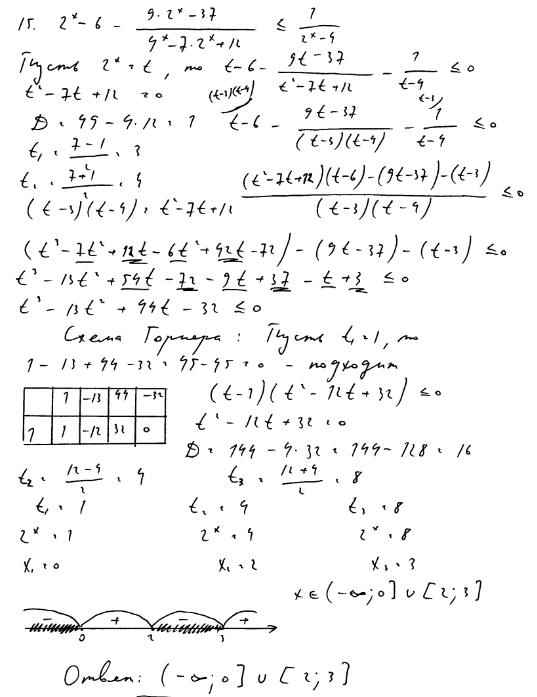 15. 2^x - 6 - (9·2^x - 37)/(4^x - 7·2^x + 12) ≤ 1/(2^x - 4)
Пусть 2^x = t, то t - 6 - (9t - 37)/(t² - 7t + 12) - 1/(t - 4) ≤ 0
t² - 7t + 12 = 0
D = 49 - 4·12 = 1
(t-3)(t-4) t - 6 - (9t - 37)/((t-3)(t-4)) - 1/(t-4) (t-3) ≤ 0
t₁ = (7-1)/2 = 3
t₂ = (7+1)/2 = 4
(t-3)(t-4) = t² - 7t + 12
((t² - 7t + 12)(t-6) - (9t-37) - (t-3))/((t-3)(t-4)) ≤ 0
(t³ - 7t² + 12t - 6t² + 42t - 72) - (9t - 37) - (t-3) ≤ 0
t³ - 13t² + 54t - 72 - 9t + 37 - t + 3 ≤ 0
t³ - 13t² + 44t - 32 ≤ 0
Схема Горнера: Пусть t₁=1, то
1 - 13 + 44 - 32 = 45 - 45 = 0 - подходит
1 -13 44 -32
1 1 -12 32 0
(t-1)(t² - 12t + 32) ≤ 0
t² - 12t + 32 = 0
D = 144 - 4·32 = 144 - 128 = 16
t₂ = (12-4)/2 = 4 t₃ = (12+4)/2 = 8
t₁ = 1 t₂ = 4 t₃ = 8
2^x = 1 2^x = 4 2^x = 8
x₁ = 0 x₂ = 2 x₃ = 3
x ∈ (-∞; 0] ∪ [2; 3]
- + - +
0 2 3
Ответ: (-∞; 0] ∪ [2; 3]